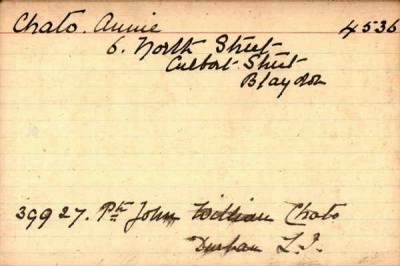 Chato. Annie 4536
6. North Street
Culbert Street
Blaydon
39927. Pte John William Chato
Durham L.I.